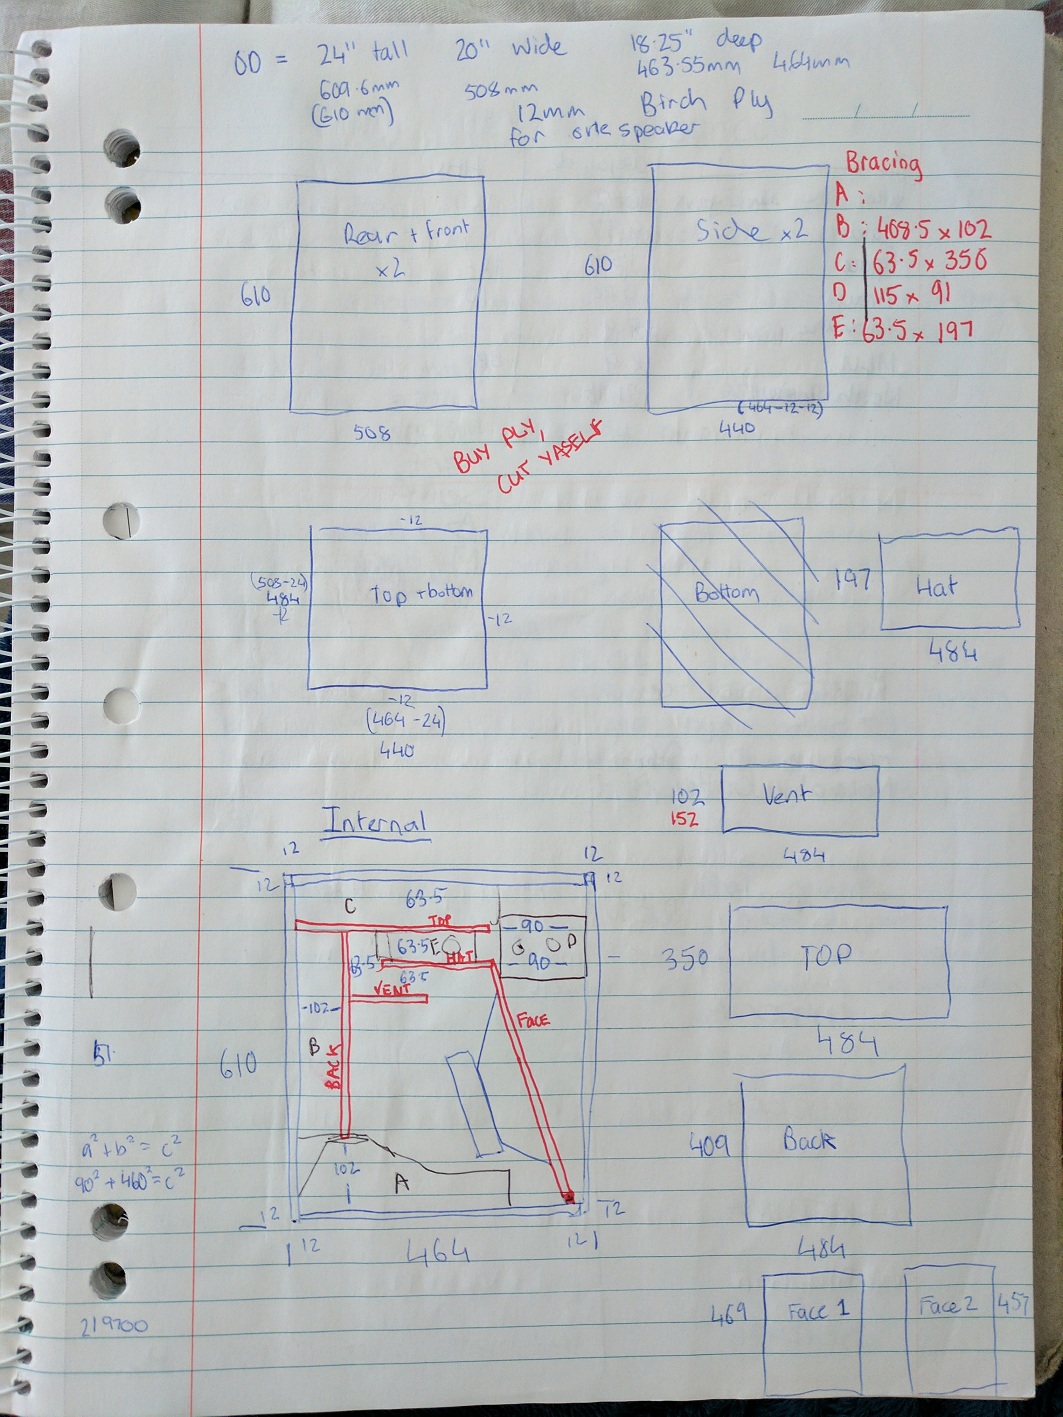 OD = 24" tall 20" wide 18.25" deep
609.6mm 508mm 463.55mm 464mm
(610 mm) 12mm Birch Ply
for one speaker
Bracing
A:
B: 408.5 x 102
C: 63.5 x 350
D 115 x 91
E: 63.5 x 197
Rear + front
x2
610
508
Side x2
610
(464-12-12)
440
BUY PLY,
CUT YASELF
-12
(508-24)
484
Top + bottom
-12
-12
(464-24)
440
Bottom
197
Hat
484
102
152
Vent
484
Internal
12
12
12
12
C 63.5
TOP
63.5 E
HAT
-90-
D
-90-
63.5
63.5
VENT
-102-
B
BACK
FACE
610
51.
102
A
12
12
12
464
12
a² + b² = c²
90² + 460² = c²
219700
350
TOP
484
409
Back
484
469
Face 1
Face 2
457